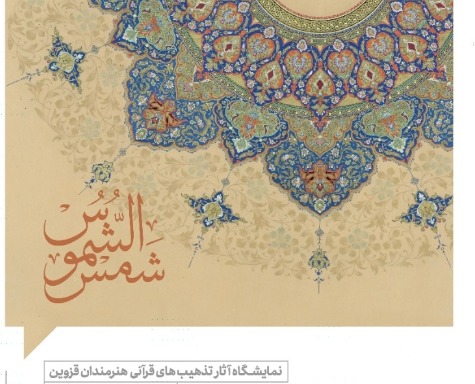 شمس الشُّموس
نمایشگاه آثار تذهیب‌های قرآنی هنرمندان قزوین